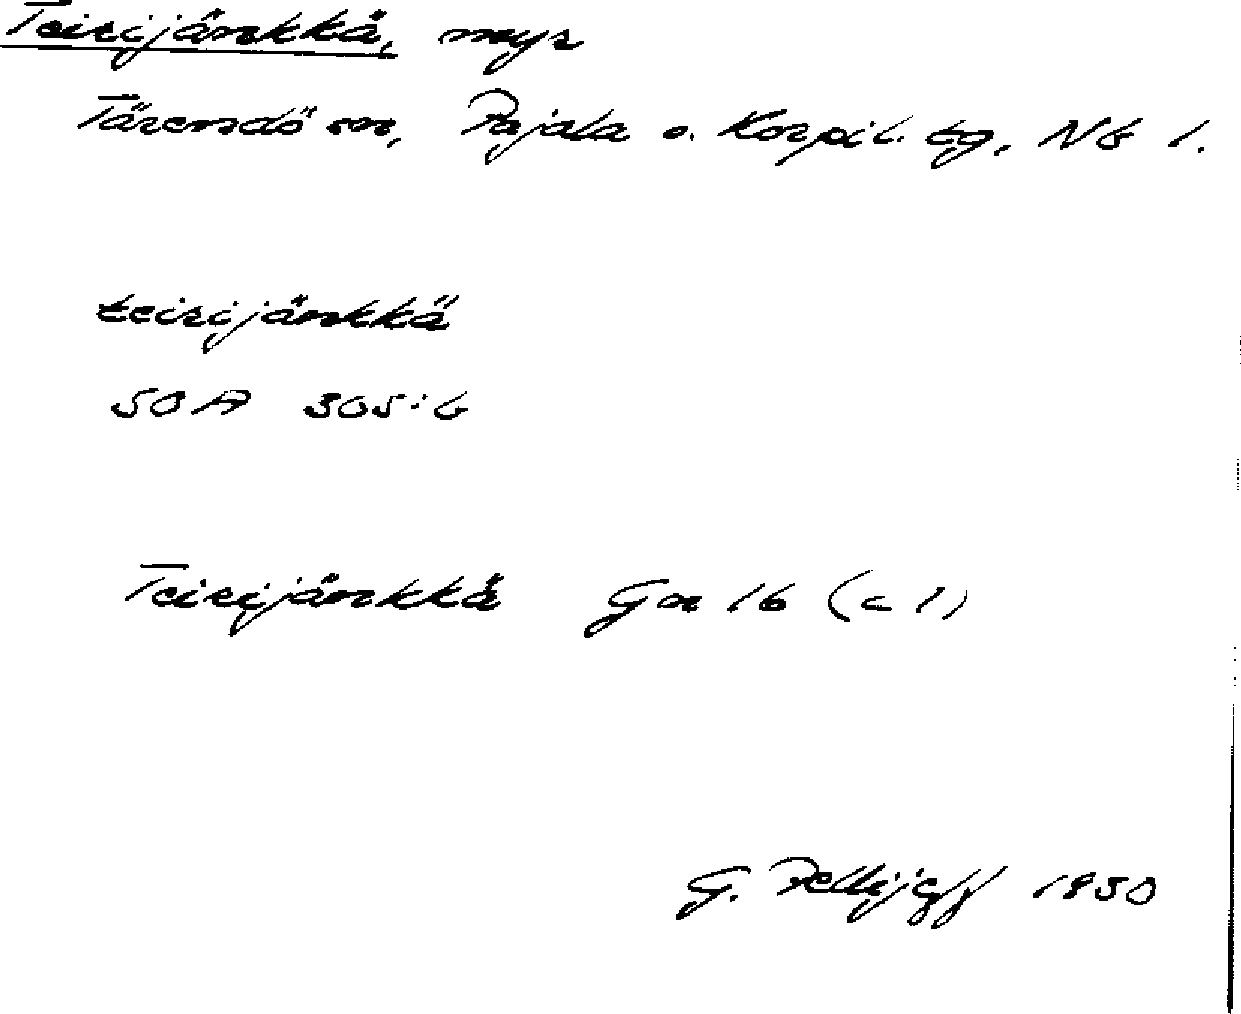 Teirijänkkä, myr
Tärendö sn, Pajala o. Korpil. tg, Nb l.
teirijänkkä
SOA 305:6
Teirijänkkä Gn 16 (c 1)
G. Pellijeff 1950